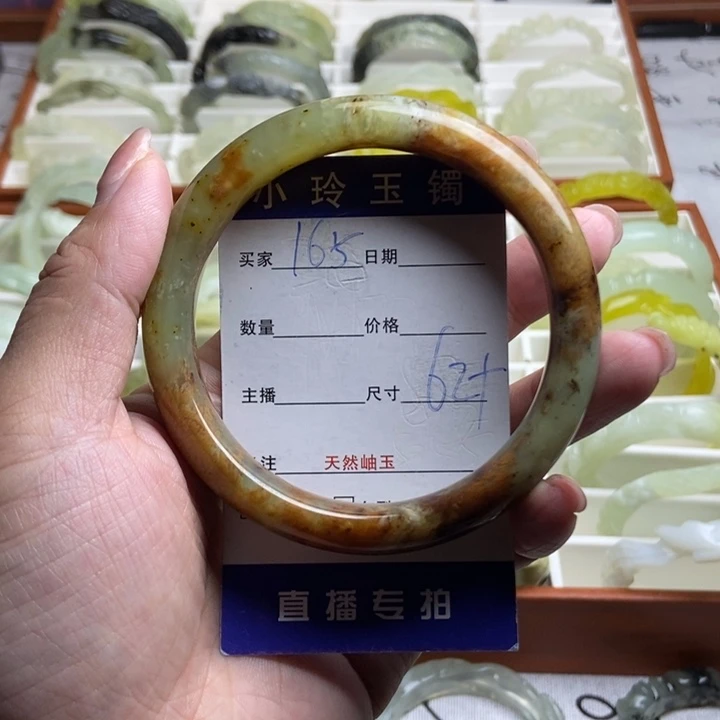 小玲玉镯
买家 165 日期
数量 价格
主播 尺寸 62+
注 天然岫玉
直播专拍